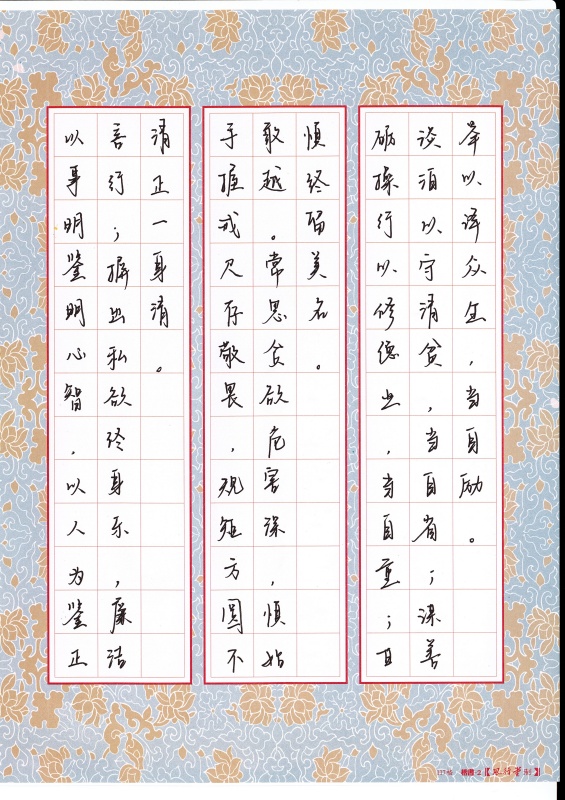 以事明鉴明心智，以人为鉴正
言行；摒出私欲终身乐，廉洁
清正一身清。
手握戒尺存敬畏，观矩方圆不
敢越。常思贪欲危害深，慎始
慎终留美名。
砺操行以修德业，当自重；甘
淡泊以守清贫，当自省；谋善
举以泽众生，当自励。